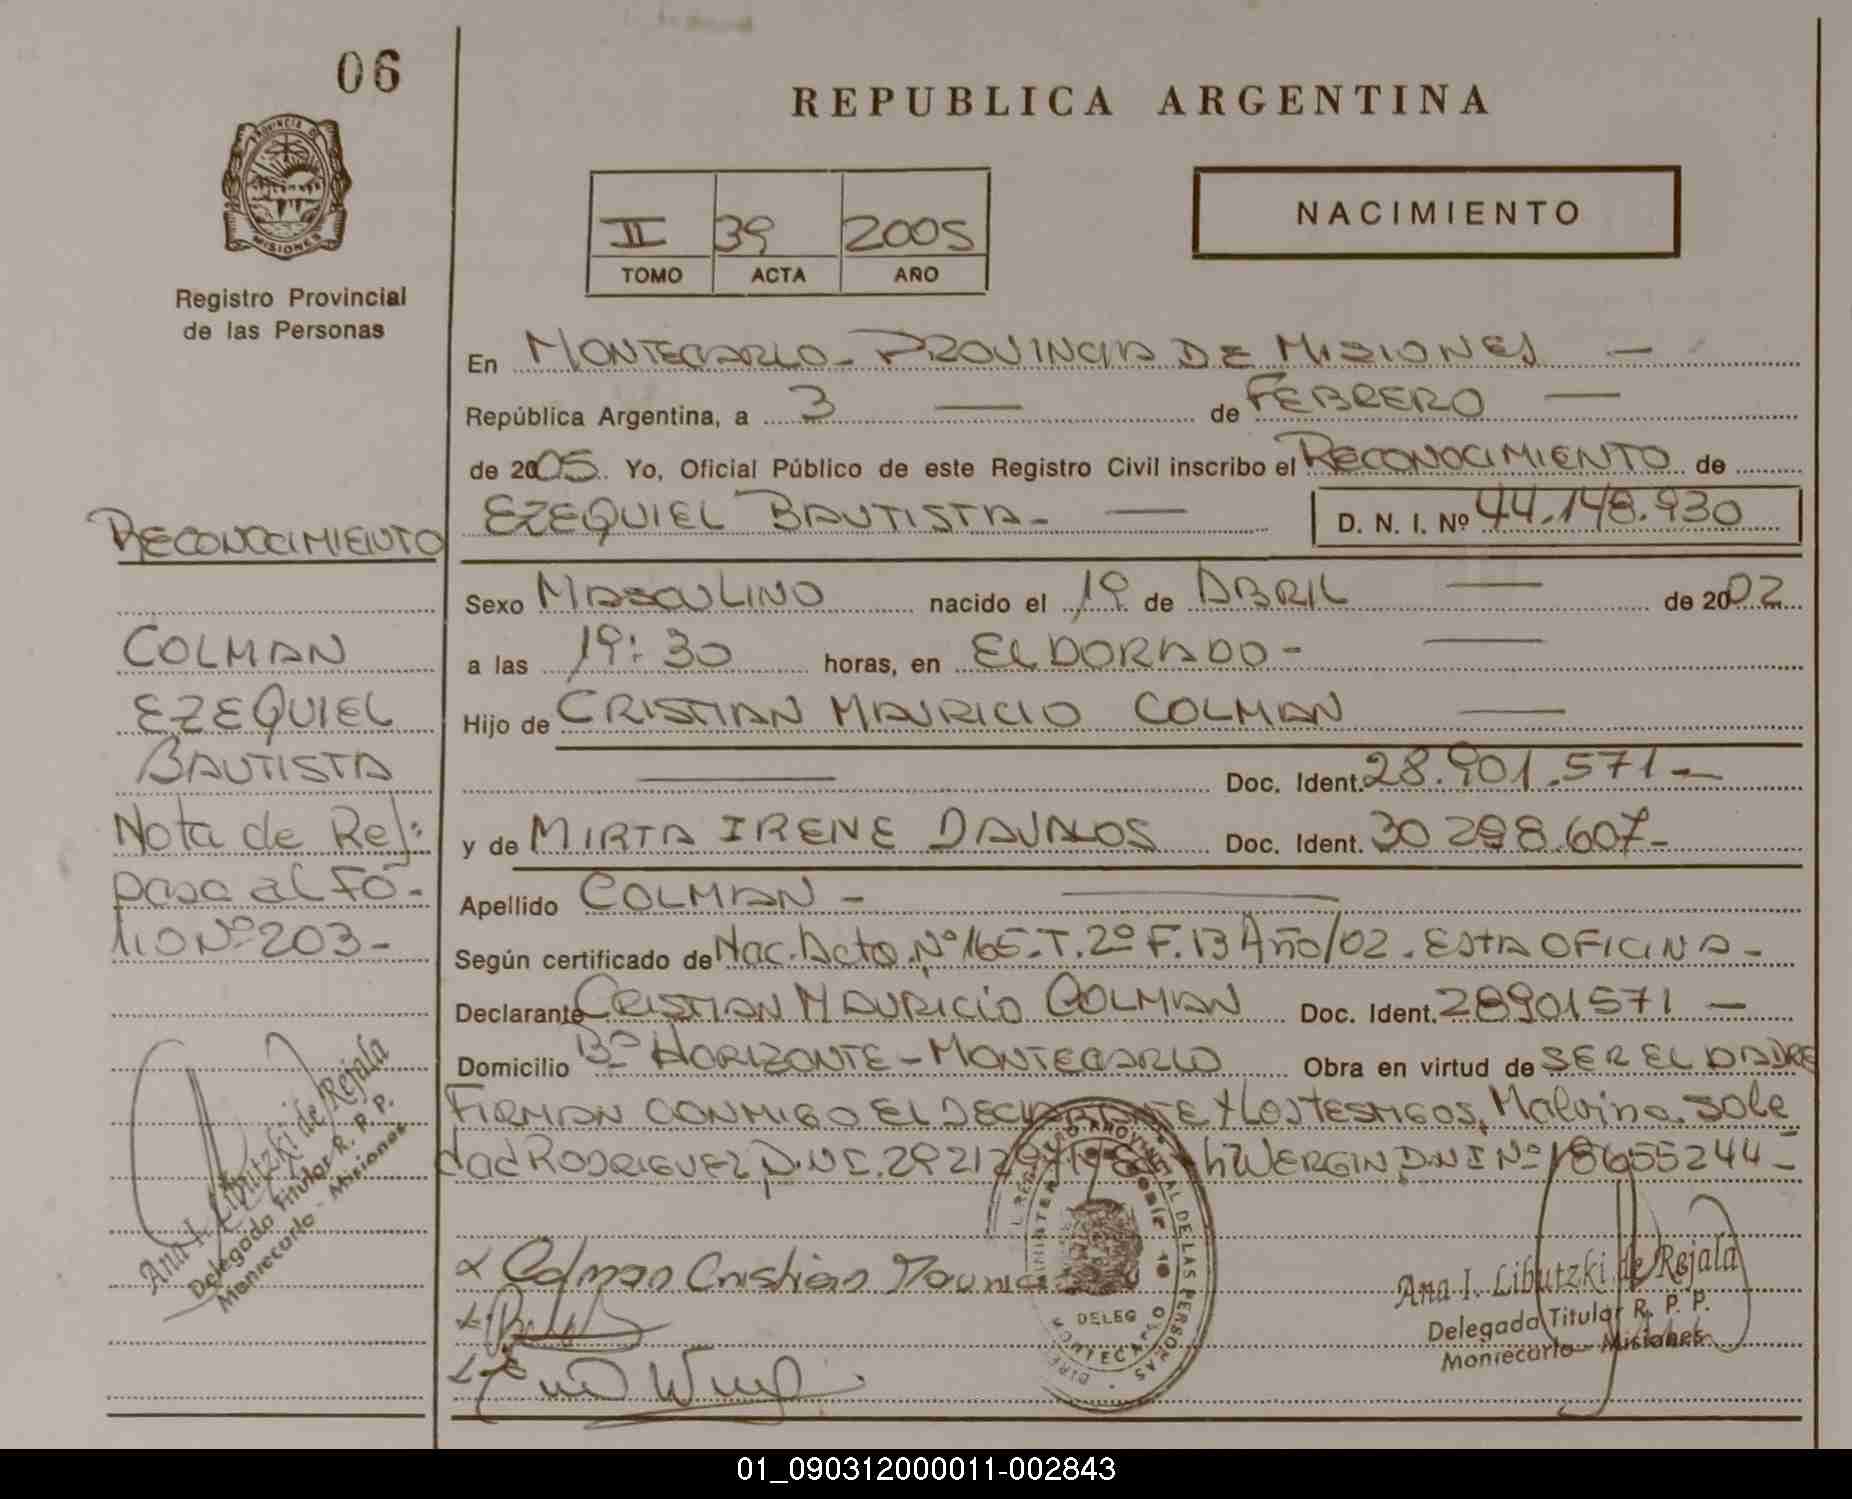 06
REPUBLICA ARGENTINA
PROVINCIA DE
MISIONES
Registro Provincial
de las Personas
II 39 2005
TOMO ACTA AÑO
NACIMIENTO
En MONTECARLO - PROVINCIA DE MISIONES —
República Argentina, a 3 — de FEBRERO —
de 2005. Yo, Oficial Público de este Registro Civil inscribo el RECONOCIMIENTO de
EZEQUIEL BAUTISTA - — D. N. I. Nº 44.148.930
Sexo MASCULINO nacido el 19 de ABRIL — de 2002
a las 19:30 horas, en ELDORADO - —
Hijo de CRISTIAN MAURICIO COLMAN —
— Doc. Ident. 28.901.571 -
y de MIRTA IRENE DAVALOS Doc. Ident. 30 298.607-
Apellido COLMAN - —
Según certificado de Nac. Acta Nº 165-T. 2º F. 13 Año/02 - ESTA OFICINA -
Declarante CRISTIAN MAURICIO COLMAN Doc. Ident. 28901571 -
Domicilio Bº HORIZONTE - MONTECARLO Obra en virtud de SER EL PADRE
FIRMAN CONMIGO EL DECLARANTE Y LOS TESTIGOS, Malvina Sole
dad RODRIGUEZ, D.N.I. WERGIN D.N.I Nº 18655244 -
x Colman Cristian
RECONOCIMIENTO
COLMAN
EZEQUIEL
BAUTISTA
Nota de Ref:
pasa al FO-
LIO Nº 203-
Ana I. Libutzki de Rejala
Delegada Titular R. P. P.
Montecarlo - Misiones
DELEG
MONTECARLO
Ana I. Libutzki de Rejala
Delegada Titular R. P. P.
Montecarlo - Misiones
01_090312000011-002843